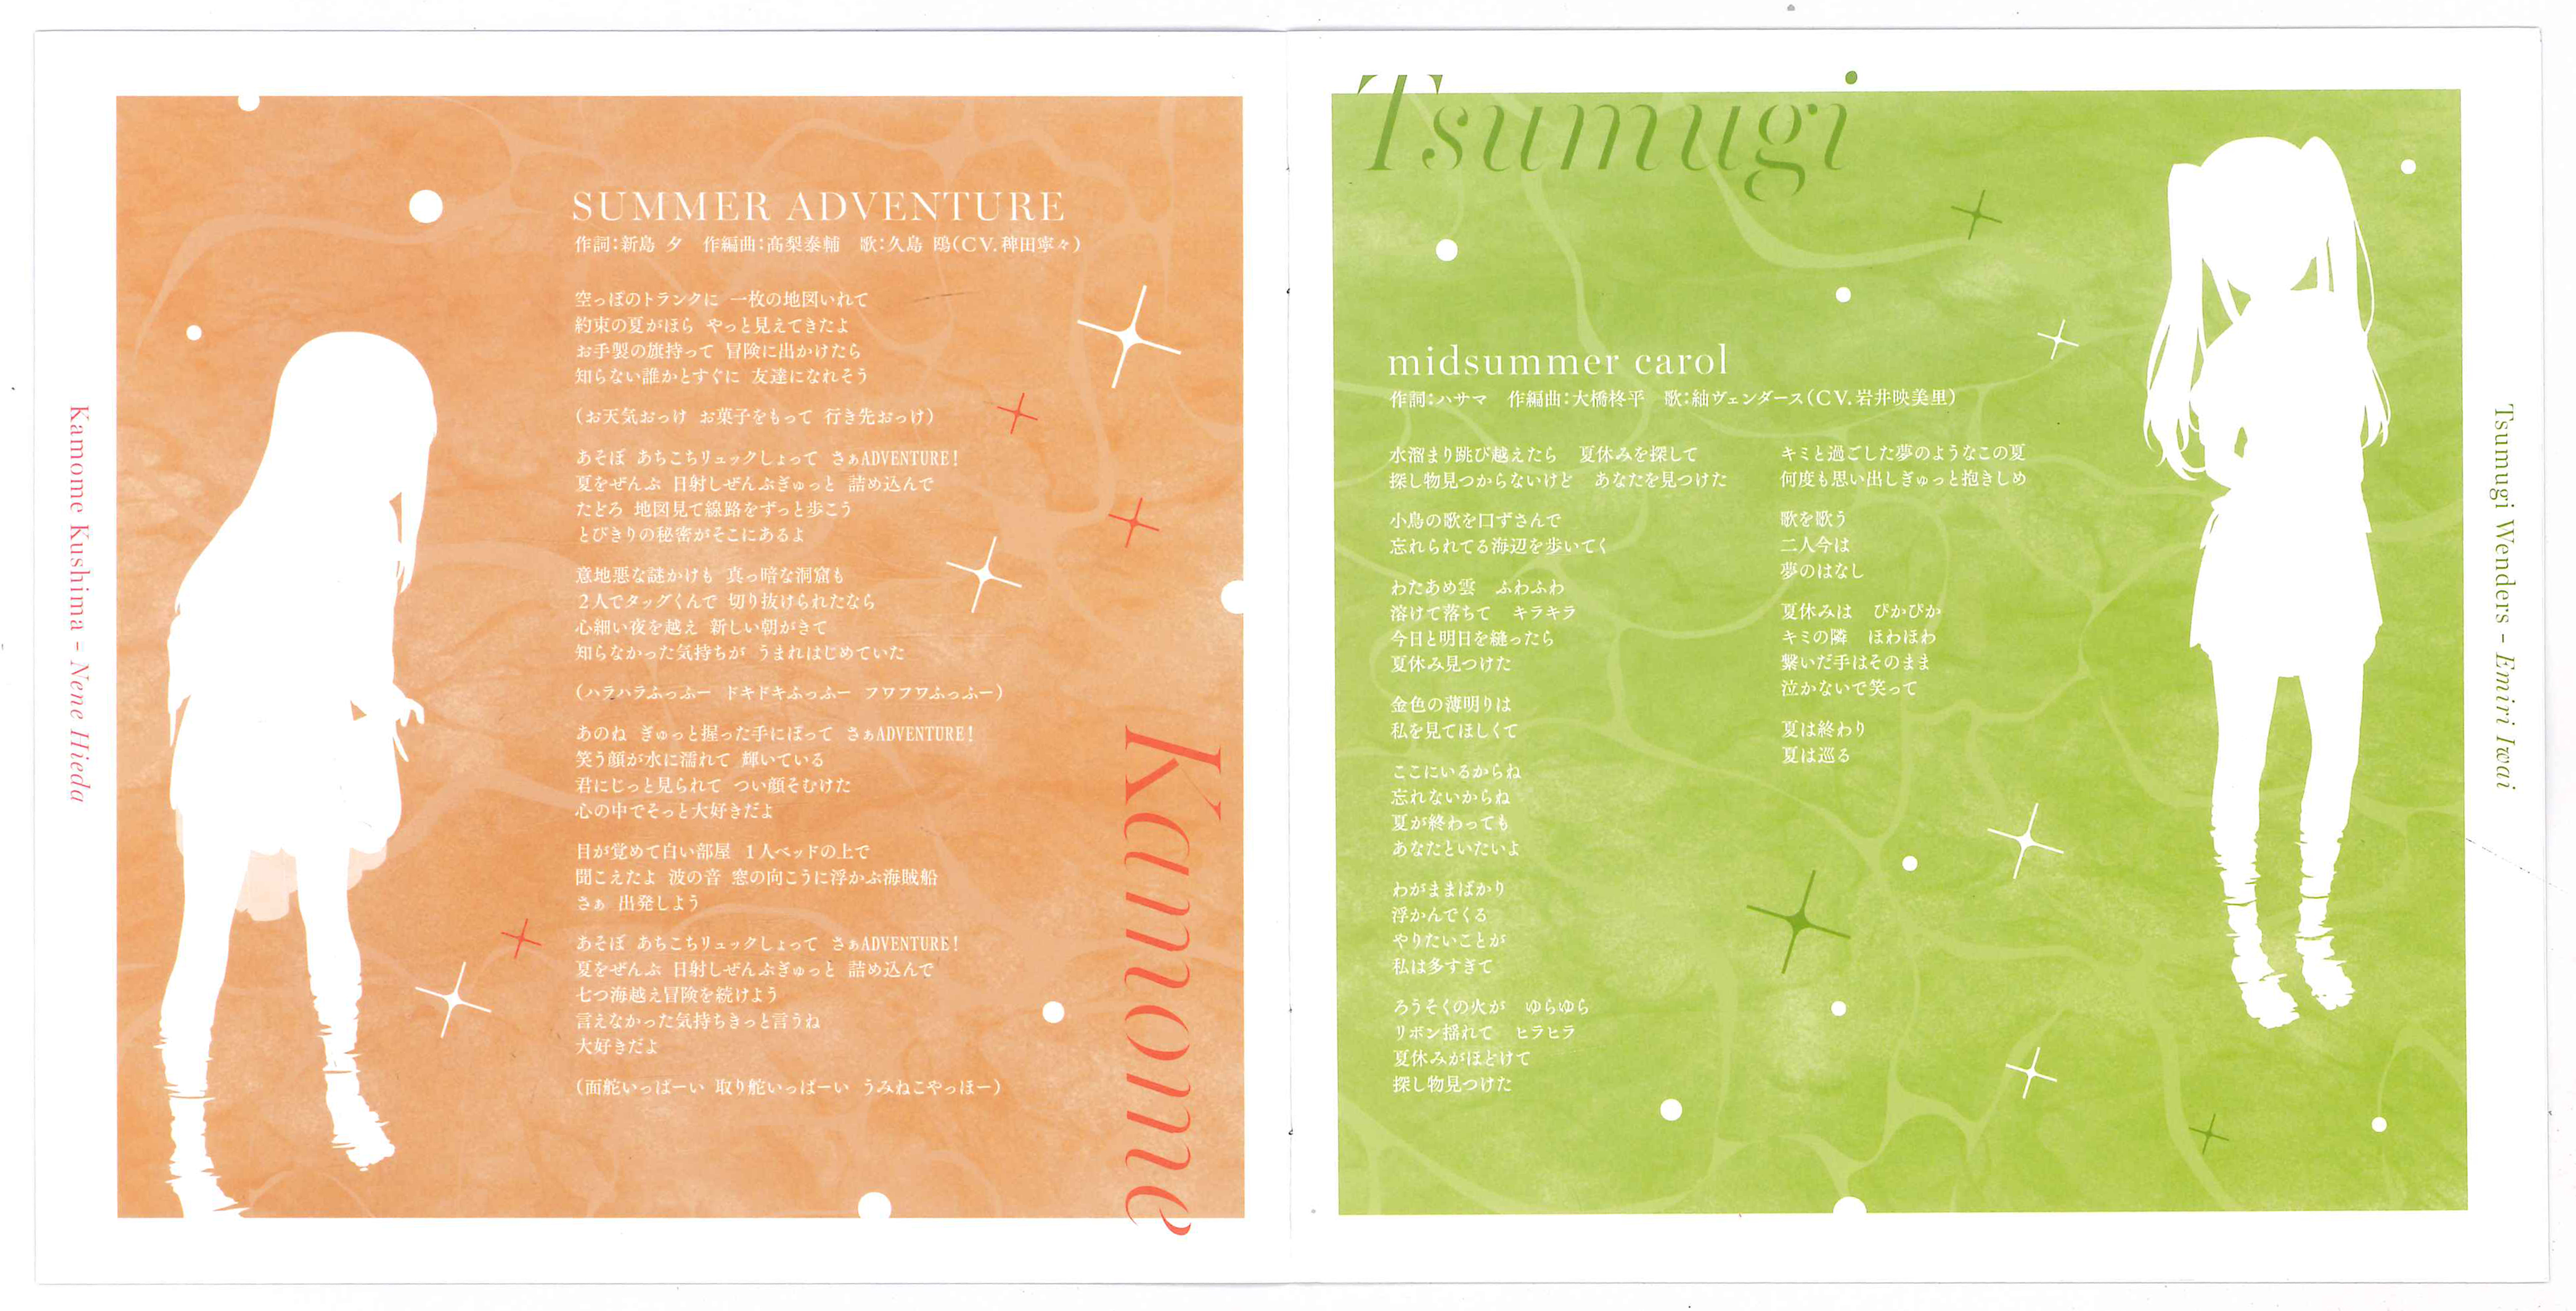 Kamome Kushima - Nene Hieda
SUMMER ADVENTURE
作詞：新島 夕　作編曲：高梨泰輔　歌：久島 鴎（CV.稗田寧々）
空っぽのトランクに 一枚の地図いれて
約束の夏がほら やっと見えてきたよ
お手製の旗持って 冒険に出かけたら
知らない誰かとすぐに 友達になれそう
（お天気おっけ お菓子をもって 行き先おっけ）
あそぼ あちこちリュックしょって さぁADVENTURE！
夏をぜんぶ 日射しぜんぶぎゅっと 詰め込んで
たどろ 地図見て線路をずっと歩こう
とびきりの秘密がそこにあるよ
意地悪な謎かけも 真っ暗な洞窟も
２人でタッグくんで 切り抜けられたなら
心細い夜を越え 新しい朝がきて
知らなかった気持ちが うまれはじめていた
（ハラハラふっふー ドキドキふっふー フワフワふっふー）
あのね ぎゅっと握った手にぽって さぁADVENTURE！
笑う顔が水に濡れて 輝いている
君にじっと見られて つい顔そむけた
心の中でそっと大好きだよ
目が覚めて白い部屋 １人ベッドの上で
聞こえたよ 波の音 窓の向こうに浮かぶ海賊船
さぁ 出発しよう
あそぼ あちこちリュックしょって さぁADVENTURE！
夏をぜんぶ 日射しぜんぶぎゅっと 詰め込んで
七つ海越え冒険を続けよう
言えなかった気持ちきっと言うね
大好きだよ
（面舵いっぱーい 取り舵いっぱーい うみねこやっほー）
Kamome
Tsumugi
midsummer carol
作詞：ハサマ　作編曲：大橋柊平　歌：紬ヴェンダース（CV.岩井映美里）
水溜まり跳び越えたら　夏休みを探して
探し物見つからないけど　あなたを見つけた
小鳥の歌を口ずさんで
忘れられてる海辺を歩いてく
わたあめ雲　ふわふわ
溶けて落ちて　キラキラ
今日と明日を縫ったら
夏休み見つけた
金色の薄明りは
私を見てほしくて
ここにいるからね
忘れないからね
夏が終わっても
あなたといたいよ
わがままばかり
浮かんでくる
やりたいことが
私は多すぎて
ろうそくの火が　ゆらゆら
リボン揺れて　ヒラヒラ
夏休みがほどけて
探し物見つけた
キミと過ごした夢のようなこの夏
何度も思い出しぎゅっと抱きしめ
歌を歌う
二人今は
夢のはなし
夏休みは　ぴかぴか
キミの隣　ほわほわ
繋いだ手はそのまま
泣かないで笑って
夏は終わり
夏は巡る
Tsumugi Wenders - Emiri Iwai